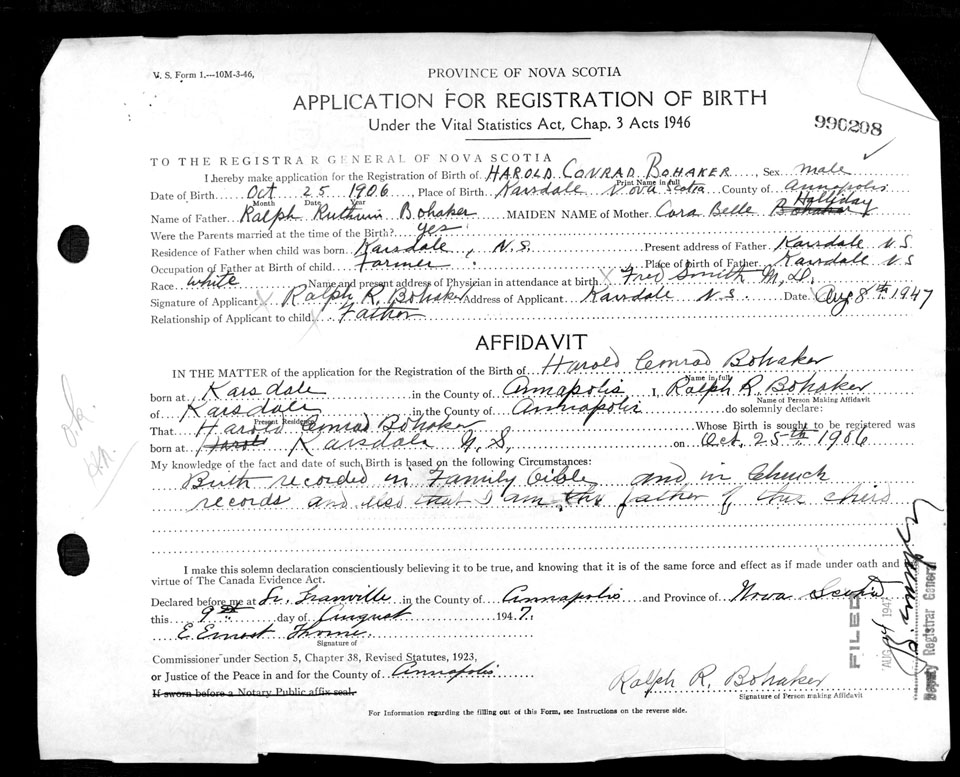 V. S. Form 1.—10M-3-46,
PROVINCE OF NOVA SCOTIA
APPLICATION FOR REGISTRATION OF BIRTH
Under the Vital Statistics Act, Chap. 3 Acts 1946
990208
TO THE REGISTRAR GENERAL OF NOVA SCOTIA
I hereby make application for the Registration of Birth of HAROLD CONRAD BOHAKER Sex male
Print Name in full
Date of Birth Oct 25 1906, Place of Birth Karsdale Nova Scotia County of Annapolis
Month Date Year
Holliday
Name of Father Ralph Ruthven Bohaker MAIDEN NAME of Mother Cora Belle Bohaker
Were the Parents married at the time of the Birth? yes
Residence of Father when child was born Karsdale, N.S. Present address of Father Karsdale N.S
Occupation of Father at Birth of child Farmer Place of birth of Father Karsdale N.S
Race white Name and present address of Physician in attendance at birth X Fred Smith M.D.
Signature of Applicant X Ralph R. Bohaker Address of Applicant Karsdale N.S. Date X Aug 8th 1947
Relationship of Applicant to child X Father
AFFIDAVIT
IN THE MATTER of the application for the Registration of the Birth of Harold Conrad Bohaker
Name in full
born at Karsdale in the County of Annapolis I, Ralph R. Bohaker
Name of Person Making Affidavit
of Karsdale in the County of Annapolis do solemnly declare:
Present Residence
That Harold Conrad Bohaker Whose Birth is sought to be registered was
born at Harold Karsdale N.S. on Oct. 25th 1906
My knowledge of the fact and date of such Birth is based on the following Circumstances:
Birth recorded in Family bible and in Church
records and also that I am the father of this child
o.k.
I make this solemn declaration conscientiously believing it to be true, and knowing that it is of the same force and effect as if made under oath and
virtue of The Canada Evidence Act.
Declared before me at Granville in the County of Annapolis and Province of Nova Scotia
this 9th day of August 1947.
E. Ernest Thorne
Signature of
Commissioner under Section 5, Chapter 38, Revised Statutes, 1923,
or Justice of the Peace in and for the County of Annapolis
If sworn before a Notary Public affix seal.
Ralph R. Bohaker
Signature of Person making Affidavit
For Information regarding the filling out of this Form, see Instructions on the reverse side.
FILED
AUG 1947
Deputy Registrar General